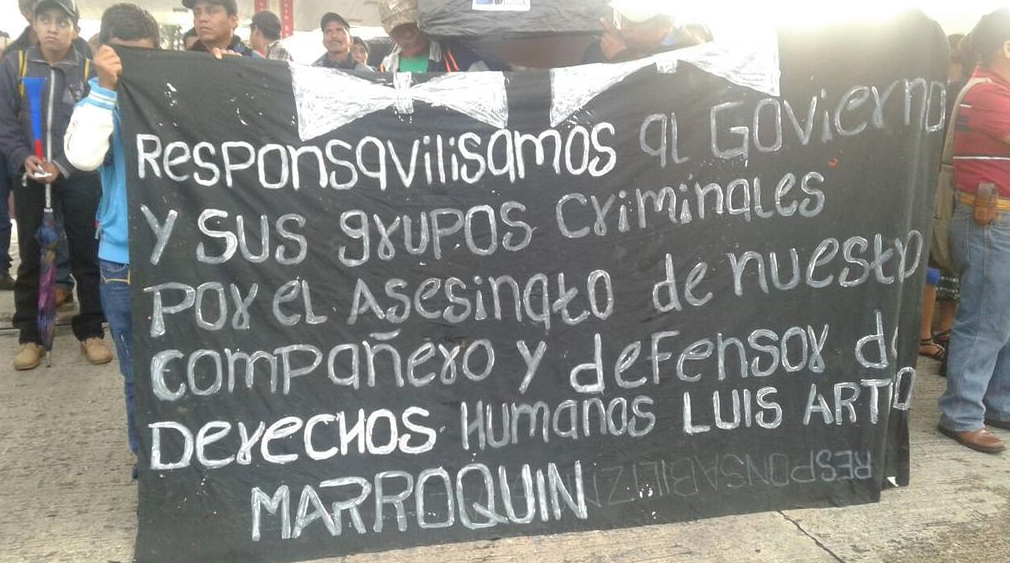 Responsavilisamos al Govierno
Y SUS grupos criminales
Por el Asesinato de nuestro
compañero y defensor de
Derechos Humanos LUIS ARTURO
MARROQUIN
RESPONSABILIZ